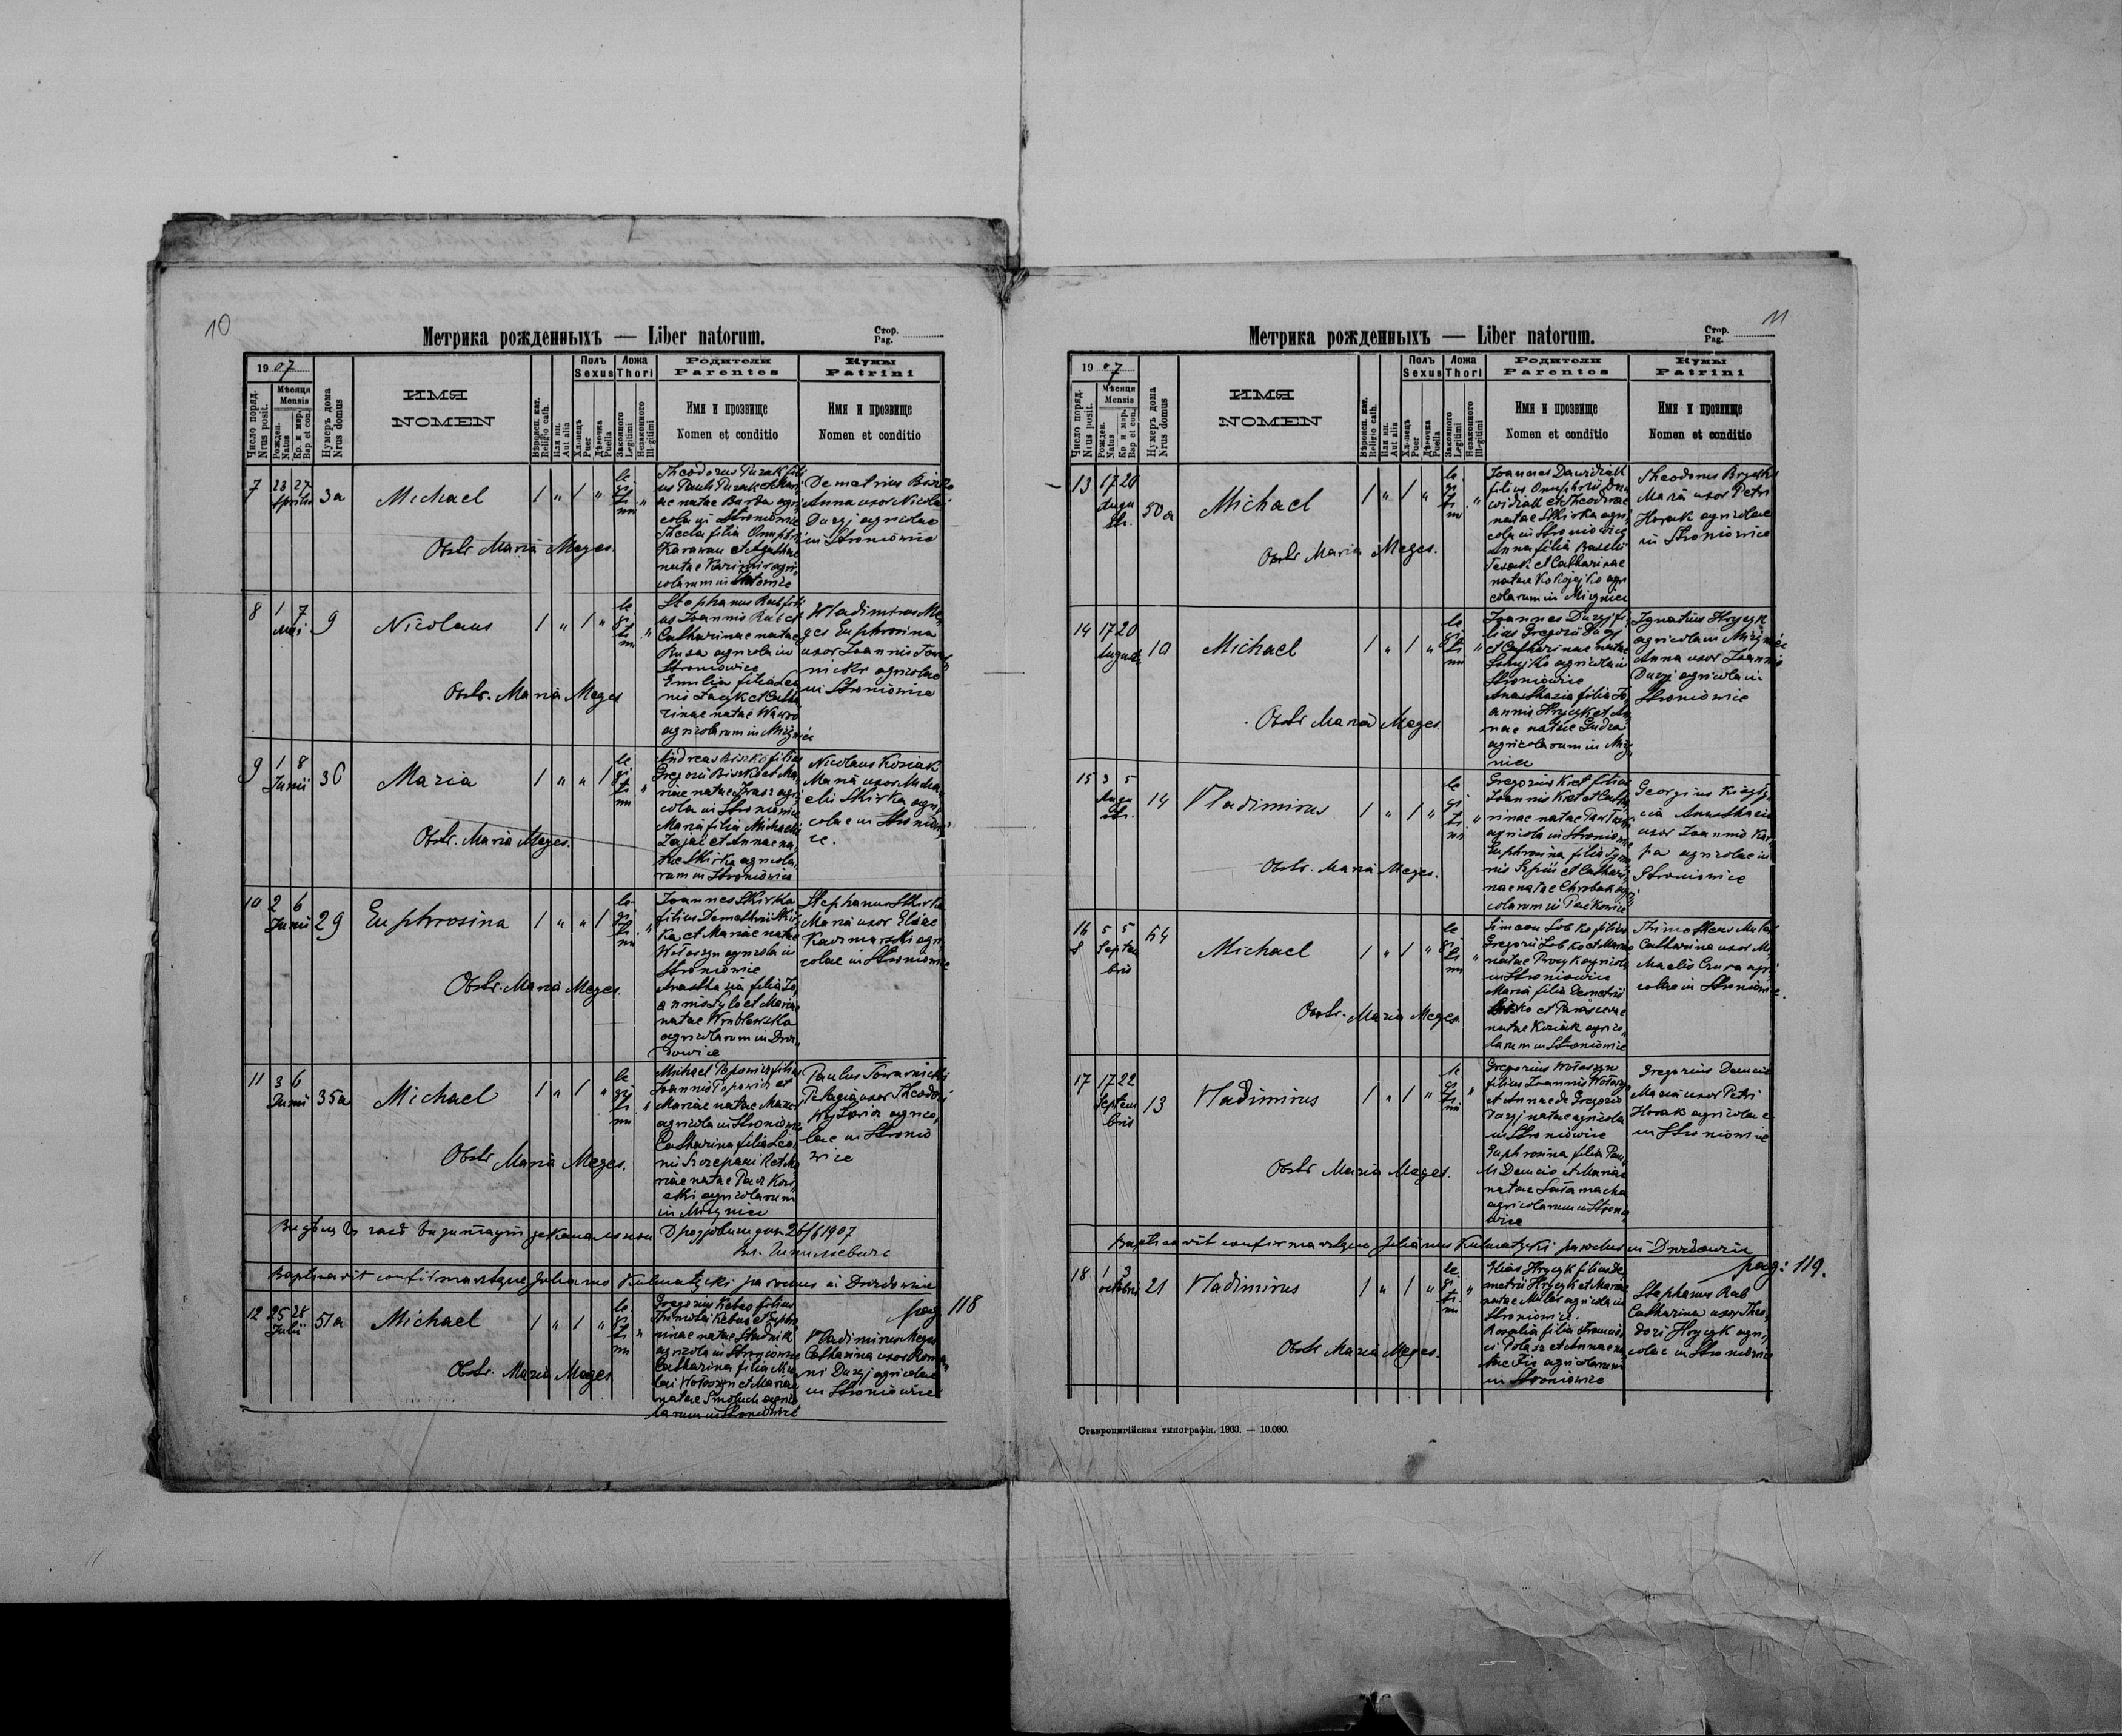 10
Метрика рожденныхъ — Liber natorum.
Стор.
Pag.
1907
Число поряд.
Nrus posit.
Мѣсяця
Mensis
Рожден.
Natus
Кр. и мѵр.
Bap et con.
Нумеръ дома
Nrus domus
ИМЯ
NOMEN
Вѣроисп. кат.
Religio cath.
Или ин.
Aut alia
Полъ
Sexus
Хлопецъ
Puer
Дѣвочка
Puella
Ложа
Thori
Законного
Legitimi
Незаконного
Illegitimi
Родители
Parentes
Имя и прозвище
Nomen et conditio
Кумы
Patrini
Имя и прозвище
Nomen et conditio
7
23 27
Aprilis
3a
Michael
1 „ 1 „
le
gi
ti
mi
„
Obstr Maria Meges.
Theodorus Puzak fili
us Pauli Puzak et Mari
ae natae Barda agri
cola in Stroniowice
Thecla filia Onuphrii
Karawan et Agathae
natae Kazimir agri
colarum in
Demetrius Biszko
Anna uxor Nicolai
Duzyj agricolae
in Stroniowice
8
1 7
Maii
9
Nicolaus
1 „ 1 „
le
gi
ti
mi
„
Obstr. Maria Meges
Stephanus Rab fili
us Joannis Rab et
Catharinae natae
Buza agricola in
Stroniowice
Emilia filia Leo
nis Zacyk et Catha
rinae natae Wawro
agricolarum in Miżyniec
Wladimirus Me
ges Euphrosina
uxor Joannis Towar
nicki agricolae
in Stroniowice
9
1 8
Junii
36
Maria
1 „ „ 1
le
gi
ti
mi
„
Obstr. Maria Meges.
Andreas Biszko filius
Gregorii Biszko et Ma
riae natae agri
cola in Stroniowice
Maria filia Michaelis
Zajac et Annae na
tae Skirka agricola
rum in Stroniowice
Nicolaus Koziak
Maria uxor Micha
elis Skirka agri
colae in Stroniowi
ce.
10
2 6
Junii
29
Euphrosina
1 „ „ 1
le
gi
ti
mi
„
Obstr. Maria Meges.
Joannes Skirka
filius Demetrii Skir
ka et Mariae natae
Wołoszyn agricola in
Stroniowice
Anasthasia filia Jo
annis Sylo et Mariae
natae Wrublewska
agricolarum in Droz
dowice
Stephanus Skirka
Maria uxor Eliae
Kaczmarski agri
colae in Stroniowice
11
3 6
Junii
35a
Michael
1 „ 1 „
le
gi
ti
mi
„
Obstr Maria Meges.
Michael Popowicz filius
Joannis Popowicz et
Mariae natae Mazur
agricola in Stroniowice
Catharina filia Leo
nis Szczepanik et Ma
riae natae
agricolarum
in Miżyniec
Paulus Towarnicki
Pelagia uxor Theodori
agrico
lae in Stronio
wice
Видѣлъ въ часѣ визитаціи деканальной Дроздовичи дня 26/6 1907
Baptisavit confirmavitque Julianus Kulmatycki parochus in Drozdowice
pag 118
12
25 28
Julii
51a
Michael
1 „ 1 „
le
gi
ti
mi
„
Obstr. Maria Meges
Gregorius Kebus filius
Thimotei Kebus et Euphro
sinae natae Studnik
agricola in Stroniowice
Catharina filia Nico
lai Wołoszyn et Mariae
natae Smoluch agrico
larum in Stroniowice
Vladimirus Meges
Catharina uxor Roma
ni Duzyj agricolae
in Stroniowice
11
Метрика рожденныхъ — Liber natorum.
Стор.
Pag.
1907
Число поряд.
Nrus posit.
Мѣсяця
Mensis
Рожден.
Natus
Кр. и мѵр.
Bap et con.
Нумеръ дома
Nrus domus
ИМЯ
NOMEN
Вѣроисп. кат.
Religio cath.
Или ин.
Aut alia
Полъ
Sexus
Хлопецъ
Puer
Дѣвочка
Puella
Ложа
Thori
Законного
Legitimi
Незаконного
Illegitimi
Родители
Parentes
Имя и прозвище
Nomen et conditio
Кумы
Patrini
Имя и прозвище
Nomen et conditio
13
17 20
Augu
sti.
50a
Michael
1 „ 1 „
le
gi
ti
mi
„
Obstr Maria Meges.
Joannes Dawidiak
filius Onuphrii Da
widiak et Theodorae
natae Skirka agri
cola in Stroniowice
Anna filia Basilii
et Catharinae
natae Kokojejko agri
colarum in Miżyniec
Theodorus
Maria uxor Petri
Horak agricolae
in Stroniowice
14
17 20
Augusti
10
Michael
1 „ 1 „
le
gi
ti
mi
„
Obstr Maria Meges
Joannes Duzyj fi
lius Gregorii Duzyj
et Catharinae natae
agricola in
Stroniowice
Anasthasia filia Jo
annis Hrycyk et An
nae natae Gudra
agricolarum in Miży
niec
Ignatius Hrycyk
agricola in Miżyniec
Anna uxor Joannis
Duzyj agricola in
Stroniowice
15
3 5
Augu
sti.
14
Vladimirus
1 „ 1 „
le
gi
ti
mi
„
Obstr. Maria Meges.
Gregorius Kret filius
Joannis Kret et Catha
rinae natae
agricola in Stroniowice
Euphrosina filia
nis et Cathari
nae natae Chrobak agri
colarum in Paćkowice
Georgius
Anasthasia
uxor Joannis Kar
pa agricolae in
Stroniowice
16
8
5 5
Septem
bris
54
Michael
1 „ 1 „
le
gi
ti
mi
„
Obstr. Maria Meges.
Simeon Sobko filius
Gregorii Sobko et Mariae
natae agricola
in Stroniowice
Maria filia Demetrii
Biszko et Parascevae
natae Koziak agrico
larum in Stroniowice
Thimotheus
Catharina uxor Mi
chaelis agri
colae in Stroniowice.
17
17 22
Septem
bris
13
Vladimirus
1 „ 1 „
le
gi
ti
mi
„
Obstr Maria Meges.
Gregorius Wołoszyn
filius Joannis Wołoszyn
et Annae de Gregorio
Duzyj natae agricola
in Stroniowice
Euphrosina filia Pau
li Demcio et Mariae
natae Sałamacha
agricolarum in Stronio
wice
Gregorius Demcio
Maria uxor Petri
Horak agricolae
in Stroniowice
Baptisavit confirmavitque Julianus Kulmatycki parochus in Drozdowice
pag: 119.
18
1 3
octobris
21
Vladimirus
1 „ 1 „
le
gi
ti
mi
„
Obstr Maria Meges.
Elias Hrycyk filius De
metrii Hrycyk et Mariae
natae agricola in
Stroniowice.
Rosalia filia Francis
ci et Annae na
tae agricolarum
in Stroniowice
Stephanus Rab
Catharina uxor Theo
dori Hrycyk agri
colae in Stroniowice
Ставропигійская типографія, 1903. — 10.000.